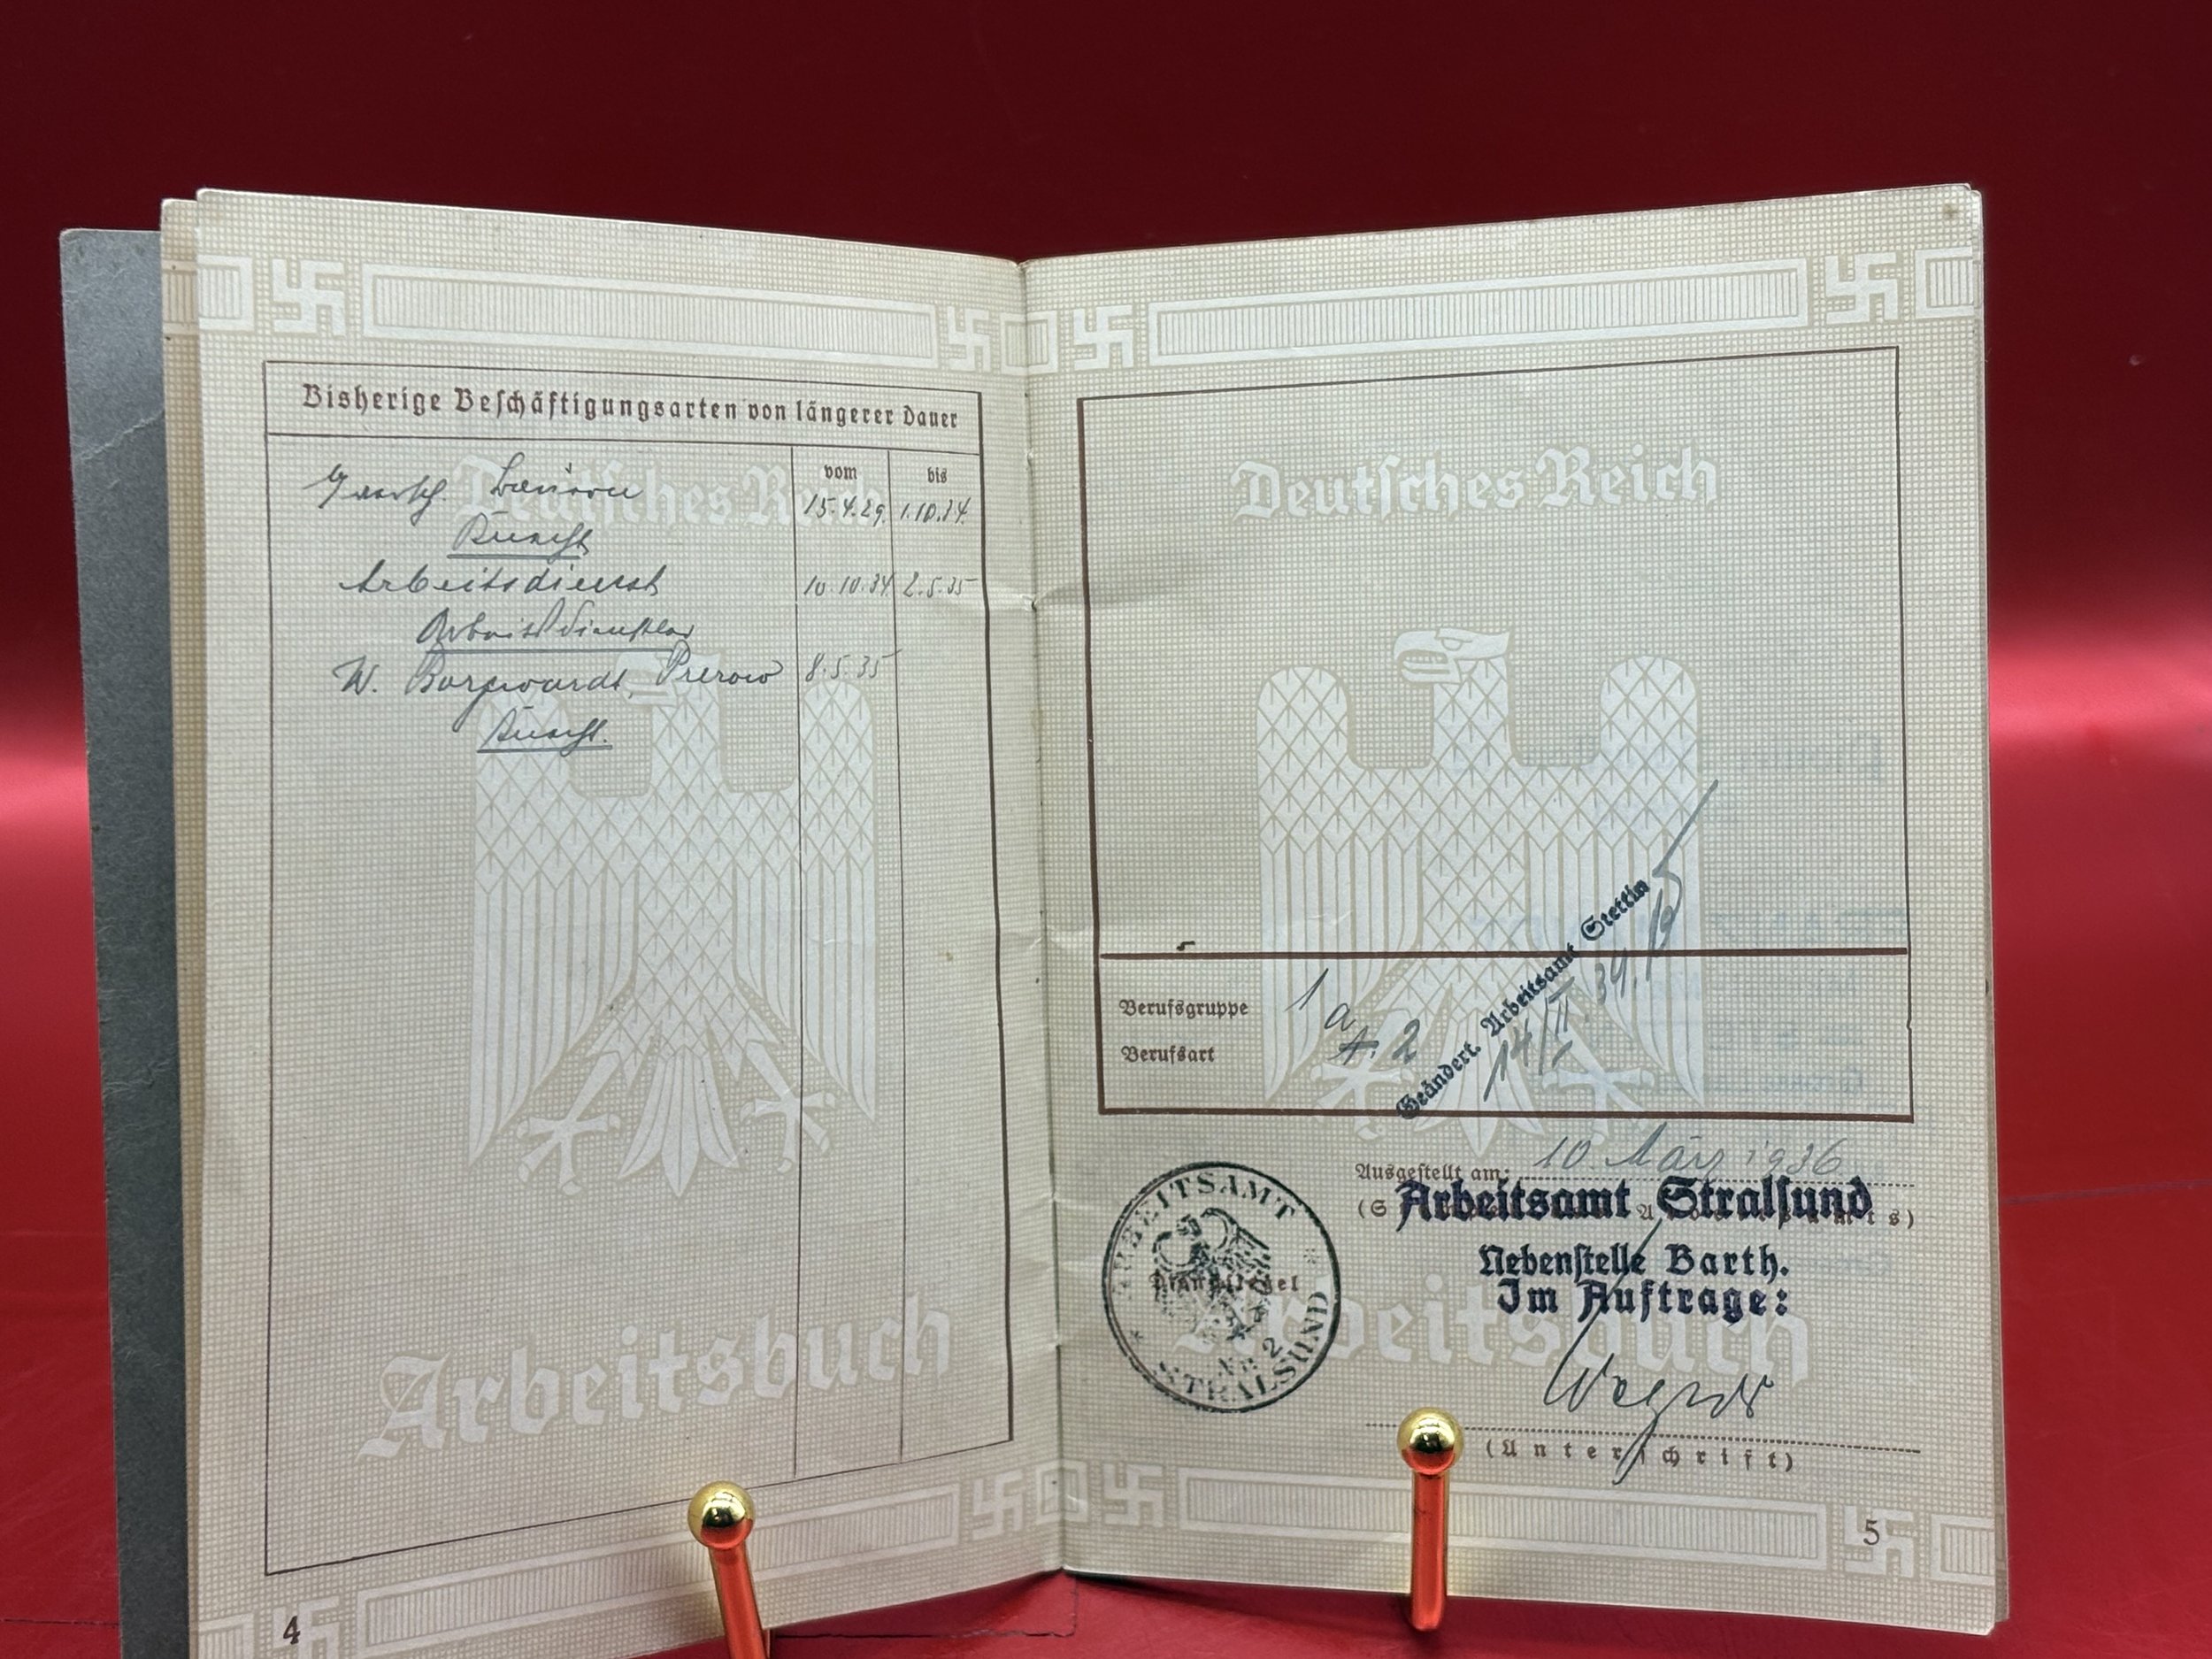 Bisherige Beschäftigungsarten von längerer Dauer
vom bis
15.4.29. 1.10.34.
Arbeitsdienst 10.10.34 2.5.35
Arbeitsdienstler
W. Borgwardt, Prerow 8.5.35
Deutsches Reich
Arbeitsbuch
4
Deutsches Reich
Berufsgruppe 1 a
Berufsart 4. 2
Geändert. Arbeitsamt Stettin
14/II. 39.
Ausgestellt am: 10. März 1936
Arbeitsamt Stralsund
Nebenstelle Barth.
Im Auftrage:
ARBEITSAMT
Dienstsiegel
Nr. 2
STRALSUND
Arbeitsbuch
(Unterschrift)
5